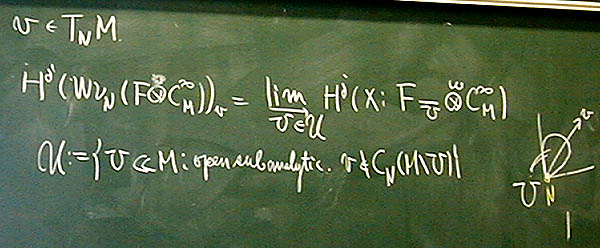 v ∈ T_N M.
H^j(Wν_N(F ⊗^w C^∞_M))_v = lim_{→ U∈𝒰} H^j(X; F_{\overline{U}} ⊗^w C^∞_M)
𝒰 := { U ⊂ M; open subanalytic. v ∉ C_N(M\U) }
v
U N